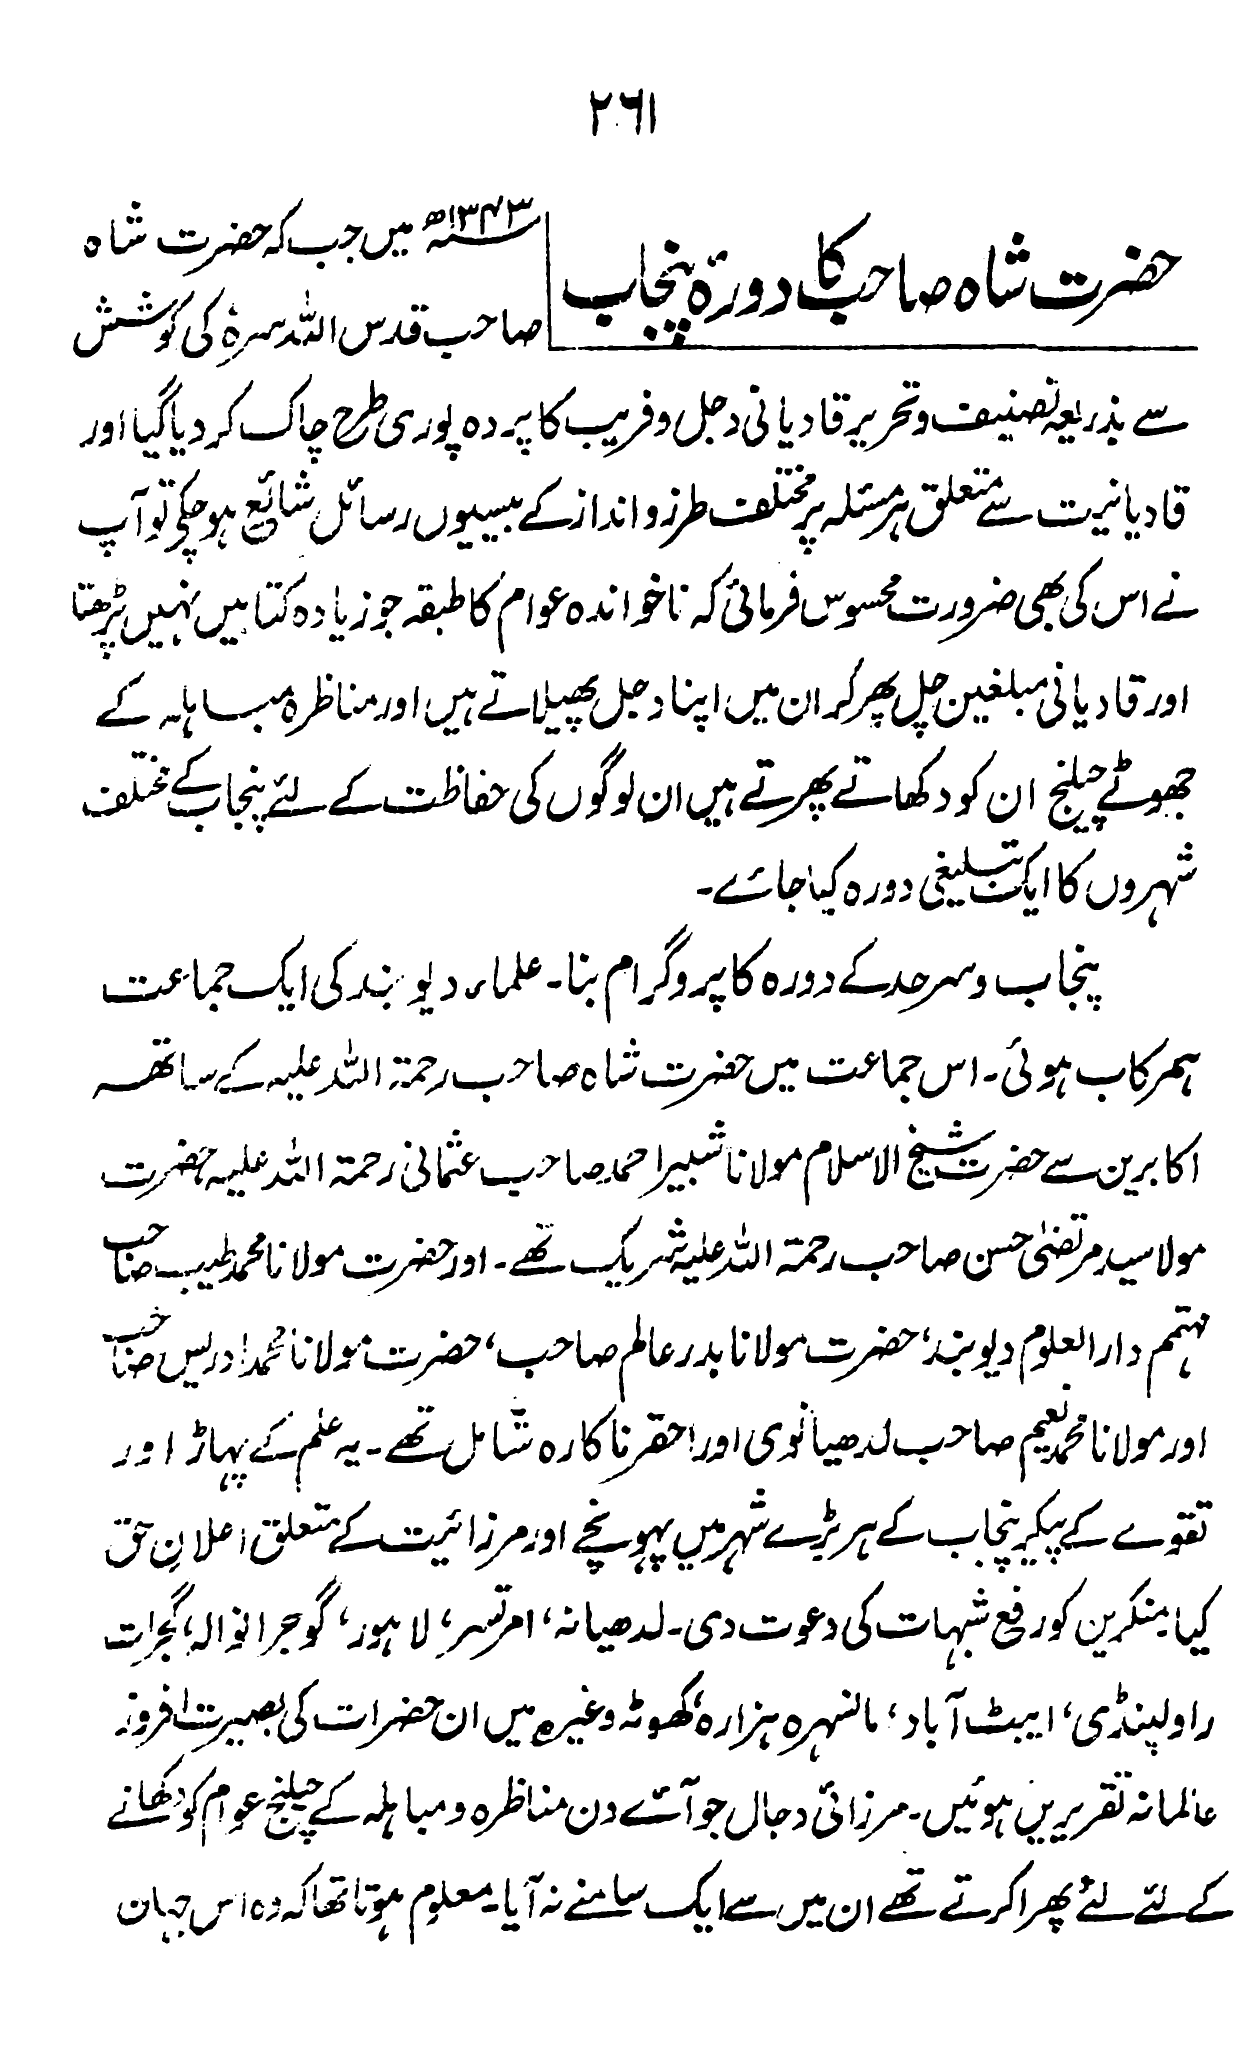 ۲۶۱
حضرت شاہ صاحب کا دورۂ پنجاب
۱۳۴۳ھ میں جب کہ حضرت شاہ
صاحب قدس اللہ سرہٗ کی کوشش
سے بذریعہ تصنیف و تحریر قادیانی دجل و فریب کا پردہ پوری طرح چاک کر دیا گیا اور
قادیانیت سے متعلق ہر مسئلہ پر مختلف طرز و انداز کے بیسیوں رسائل شائع ہو چکے تو آپ
نے اس کی بھی ضرورت محسوس فرمائی کہ ناخواندہ عوام کا طبقہ جو زیادہ کتابیں نہیں پڑھتا
اور قادیانی مبلغین چل پھر کر ان میں اپنا دجل پھیلاتے ہیں اور مناظرہ مباہلہ کے
جھوٹے چیلنج ان کو دکھاتے پھرتے ہیں ان لوگوں کی حفاظت کے لئے پنجاب کے مختلف
شہروں کا ایک تبلیغی دورہ کیا جائے۔
پنجاب و سرحد کے دورہ کا پروگرام بنا۔ علماء دیوبند کی ایک جماعت
ہمرکاب ہوئی۔ اس جماعت میں حضرت شاہ صاحب رحمۃ اللہ علیہ کے ساتھ
اکابرین سے حضرت شیخ الاسلام مولانا شبیر احمد صاحب عثمانی رحمۃ اللہ علیہ حضرت
مولا سید مرتضیٰ حسن صاحب رحمۃ اللہ علیہ شریک تھے۔ اور حضرت مولانا محمد طیب صاحب
مہتمم دارالعلوم دیوبند، حضرت مولانا بدر عالم صاحب، حضرت مولانا محمد ادریس صاحب
اور مولانا محمد نعیم صاحب لدھیانوی اور احقر ناکارہ شامل تھے۔ یہ علم کے پہاڑ اور
تقوے کے پیکر پنجاب کے ہر بڑے شہر میں پہونچے اور مرزائیت کے متعلق اعلان حق
کیا منکرین کو رفع شبہات کی دعوت دی۔ لدھیانہ، امرتسر، لاہور، گوجرانوالہ، گجرات
راولپنڈی، ایبٹ آباد، مانسہرہ ہزارہ، کھوٹہ وغیرہ میں ان حضرات کی بصیرت افروز
عالمانہ تقریریں ہوئیں۔ مرزائی دجال جو آئے دن مناظرہ و مباہلہ کے چیلنج عوام کو دکھانے
کے لئے لئے پھرا کرتے تھے ان میں سے ایک سامنے نہ آیا۔ معلوم ہوتا تھا کہ وہ اس جہان